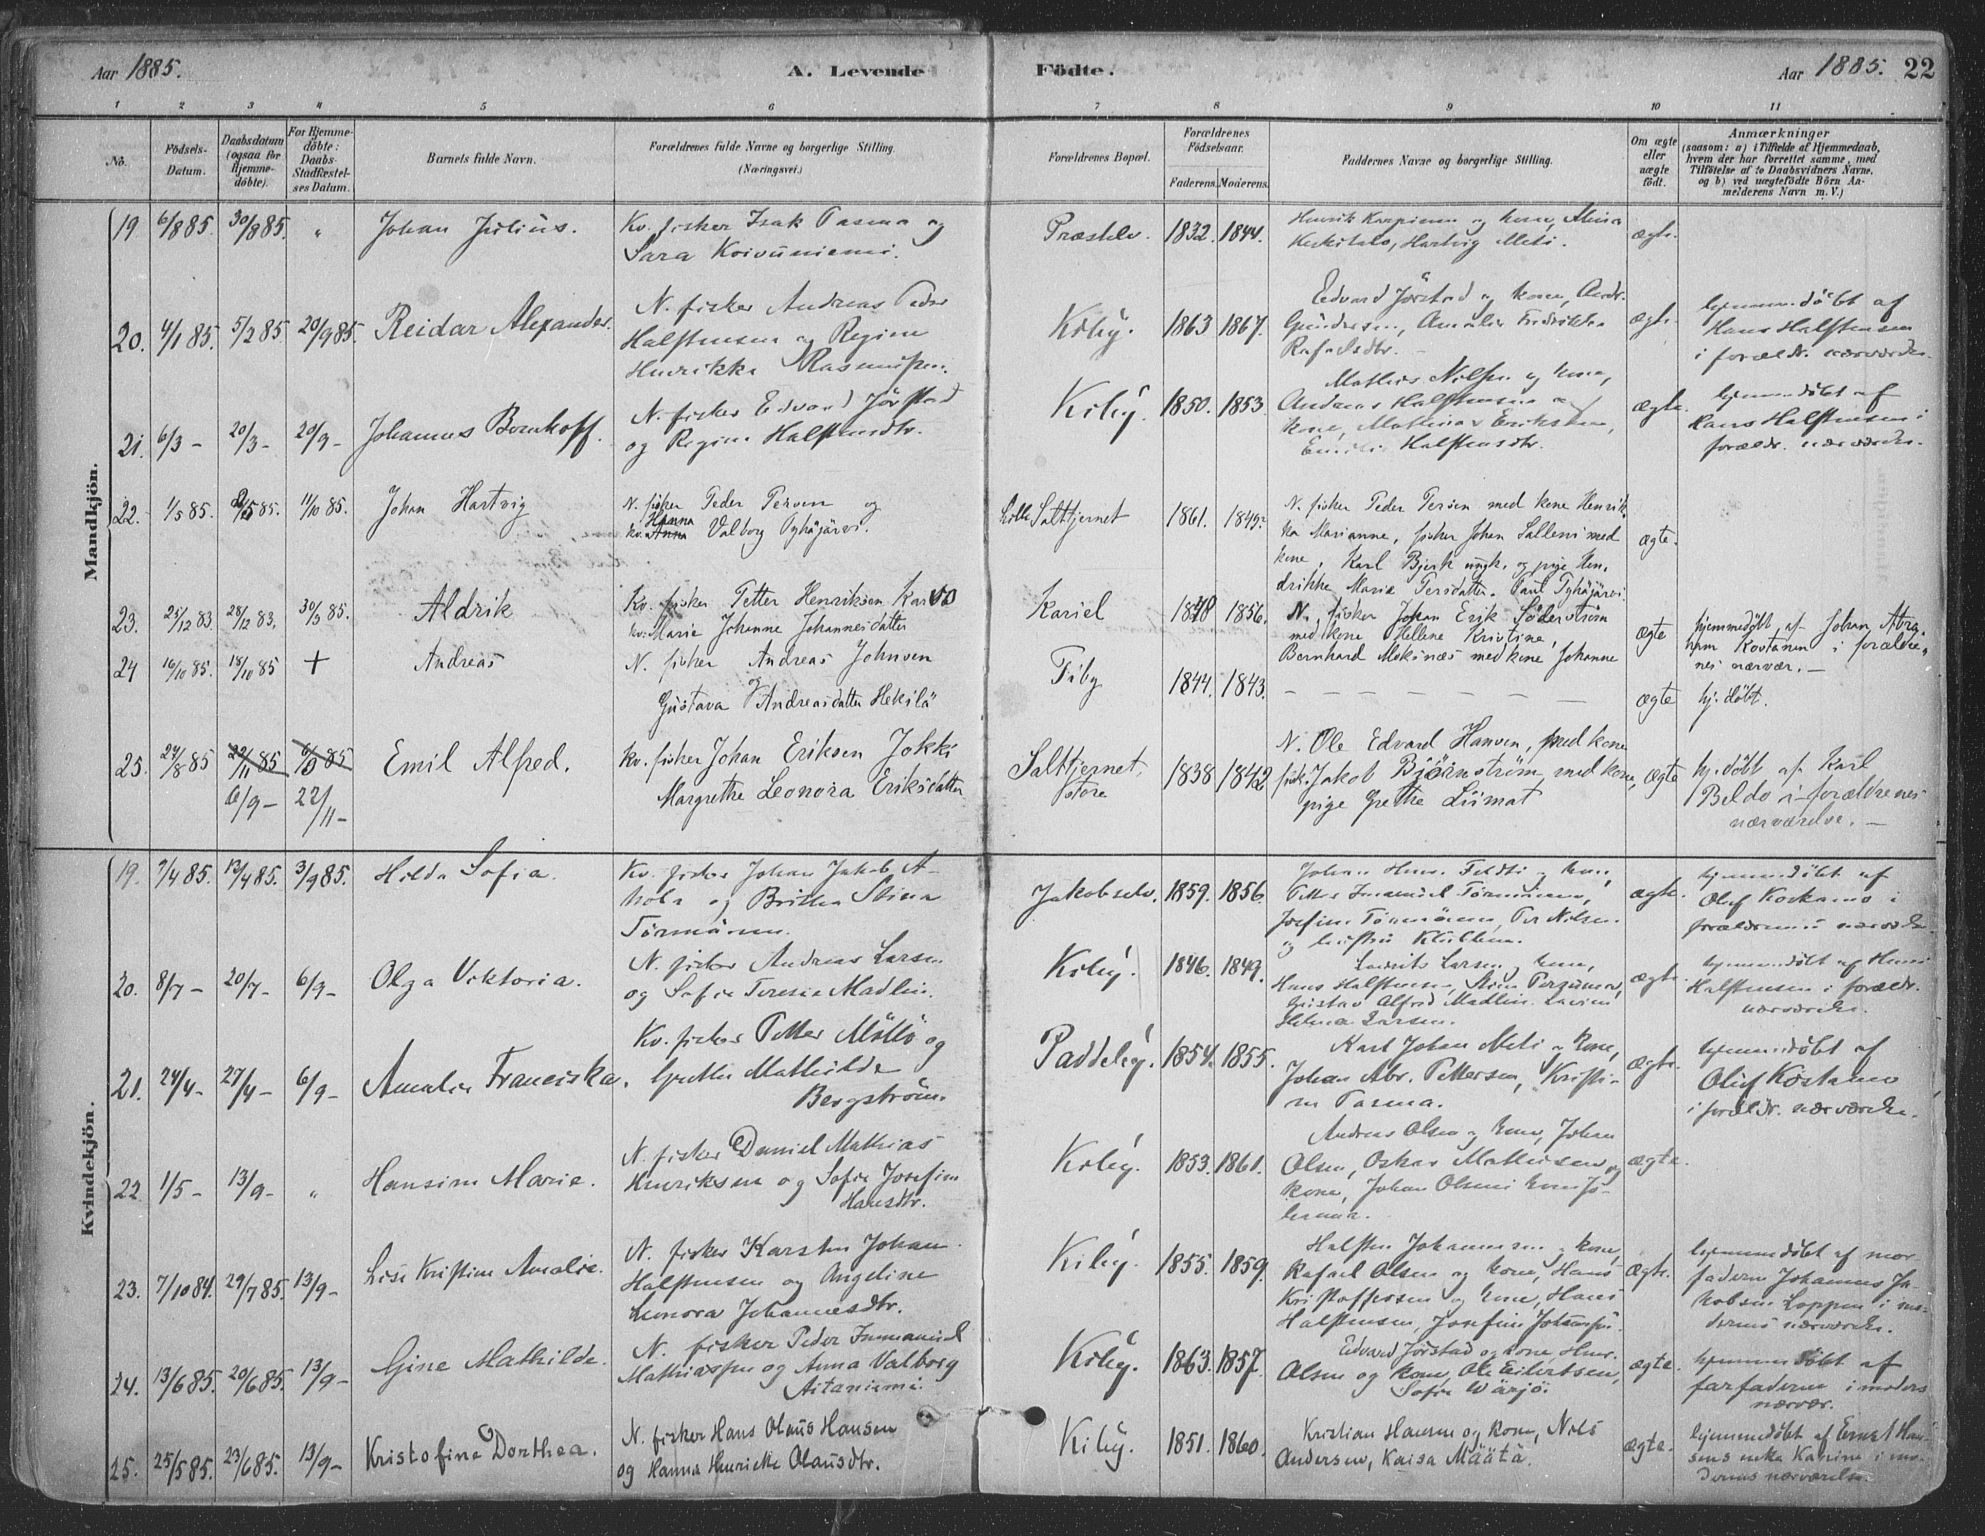 Aar 1885. A. Levende Födte. Aar 1885. 22
1 2 3 4 5 6 7 8 9 10 11
No. Födsels-Datum. Daabsdatum (ogsaa for Hjemmedöbte). For Hjemmedöbte: Daabs-Stadfæstelses Datum. Barnets fulde Navn. Forældrenes fulde Navne og borgerlige Stilling. (Næringsvei.) Forældrenes Bopæl. Forældrenes Födselsaar. Faderens. Moderens. Faddernes Navne og borgerlige Stilling. Om ægte eller uægte födt. Anmærkninger (saasom: a) i Tilfælde af Hjemmedaab, hvem der har forrettet samme, med Tilföielse af to Daabsvidners Navne, og b) ved uægtefödte Börn Anmelderens Navn m. V.)
Mandkjön.
19. 6/8 85. 30/8 85. " Johan Julius. Kv. fisker Isak Tasma og
Sara Koivuniemi. Præstelv. 1832. 1844. Henrik Karpinen og kone,
Hartvig Meti. ægte.
20. 4/1 85. 5/2 85. 20/9 85. Reidar Alexander. N. fisker Andreas Peder
Halfstensen og Regine
Henrikke Rasmussen. Kiby. 1863 1867. Edvard Jörstad og kone, Andr.
Gundersen, Amalie Fredrikke
Rafaelsdtr. ægte hjemmedöbt af
Hans Halfstensen
i foræld. nærværelse.
21. 6/3 - 20/3 - 20/9 - Johannes Bornhoff. N. fisker Edvard Jörstad
og Regine Halfstensdtr. Kiby. 1850. 1853. Mathis Nilsen og kone,
Andreas Halfstensen og
kone, Mathias Eriksen,
Emilie Halfstensdtr. ægte. hjemmedöbt af
Hans Halfstensen i
forældr. nærværelse.
22. 1/5 85. 85. 11/10 85. Johan Hartvig N. fisker Peder Persen og
Hanna
kv. Anna Valborg Pyhäjärvi. Lille Saltkjernet 1861. 1845. N. fisker Peder Persen med kone Henrik
ka Marianne, fisker Johan Salleni med
kone, Karl Bjerk ungk. og pige Hen-
drikke Marie Persdatter. Paul Pyhäjärvi. ægte.
23. 25/12 83 28/12 83. 30/3 85. Aldrik Kv. fisker Petter Henriksen Karvo
kv. Marie Johanne Johannesdatter Kariel 1848 1856. N. fisker Johan Erik Söderström
med kone Hellene Kristine,
Bernhard Moksnæs med kone Johanne ægte hjemmedöbt af Johan Abra-
ham Kostanen i forældre
nes nærvær. -
24 16/10 85. 18/10 85 + Andreas N. fisker Andreas Johnsen
Gustava Andreasdatter Heikilä Fiby 1844. 1843. - - - - - - ægte hj. döbt.
25. 24/8 85 22/11 85 6/9 85 Emil Alfred. Kv. fisker Johan Eriksen Jokki
6/9 - 22/11 - Margrethe Leonora Eriksdatter Saltkjernet,
store 1838 1842 N. Ole Edvard Hansen, med kone
fisk. Jakob Björnström med kone,
pige Grethe Liimat ægte hj. döbt af Karl
Beldo i forældrenes
nærværelse. -
Kvindekjön.
19. 7/4 85. 13/4 85. 3/9 85. Hilda Sofia. Kv. fisker Johan Jakob A-
hola og Britha Stina
Törmänen. Jakobselv. 1859. 1856 Johan Henr. og kone,
Petter Immanuel Törmänen,
Josefine Törmänen, Per Nilsen
og ægte. hjemmedöbt af
Oluf Koskamo i
forældrenes nærværelse
20. 8/7 - 20/7 - 6/9 - Olga Viktoria. N. fisker Andreas Larsen
og Sofie Teresie Madlin. Kiby. 1846. 1849. Lavrits Larsen, kone,
Hans Halfstensen,
Gustav Alfred Madlin.
Helma Larsen. ægte. hjemmedöbt af Hans
Halfstensen i forældr.
nærværelse.
21. 24/4 - 27/4 - 6/9 - Amalie Franciska. Kv. fisker Petter Möllö og
Grethe Mathilde
Bergström. Paddeby. 1854. 1855. Karl Johan Meti og kone,
Johan Abr. Pettersen, Kristi-
ne Tasma. ægte. hjemmedöbt af
Oluf Kostamo
i foreldr. nærværelse.
22 1/5 - 13/9 - " Hansine Marie. N. fisker Daniel Mathias
Henriksen og Sofie Josefine
Hansdtr. Kiby. 1853. 1861. Andreas Olsen og kone, Johan
Olsen, Oskar Mathisen og
kone, Johan Olsens kone Jo-
hanna. ægte.
23. 7/10 84. 29/7 85. 13/9 - Lise Kristine Amalie. N. fisker Karsten Johan
Halfstensen og Angeline
Leonora Johannesdtr. Kiby. 1855. 1859. Halften Johannesen og kone,
Rafael Olsen og kone, Hans
Kristoffersen og kone, Hans
Halfstensen, Josefine ægte. hjemmedöbt af mor-
faderen Johannes Ja-
kobsen Loppen i mo-
derens nærværelse.
24. 13/6 85. 20/6 85. 13/9 - Gine Mathilde. N. fisker Peder Immanuel
Mathiassen og Anna Valborg
Aitaniemi. Kiby. 1863. 1857. Edvard Jörstad og kone, Henr.
Olsen og kone, Ole Eilertsen,
Sofie Wärjö. ægte. hjemmedöbt af
farfaderen i moders
nærvær.
25. 25/5 85. 23/6 85. 13/9 - Kristofine Dorthea. N. fisker Hans Olaus Hansen
og Hanna Henrikke Olausdtr. Kiby. 1851. 1860. Kristian Hansen og kone, Nils
Andersen, Kaisa Määtä. ægte. hjemmedöbt af Ernst Han-
sens enke Katrine i mo-
derens nærværelse.